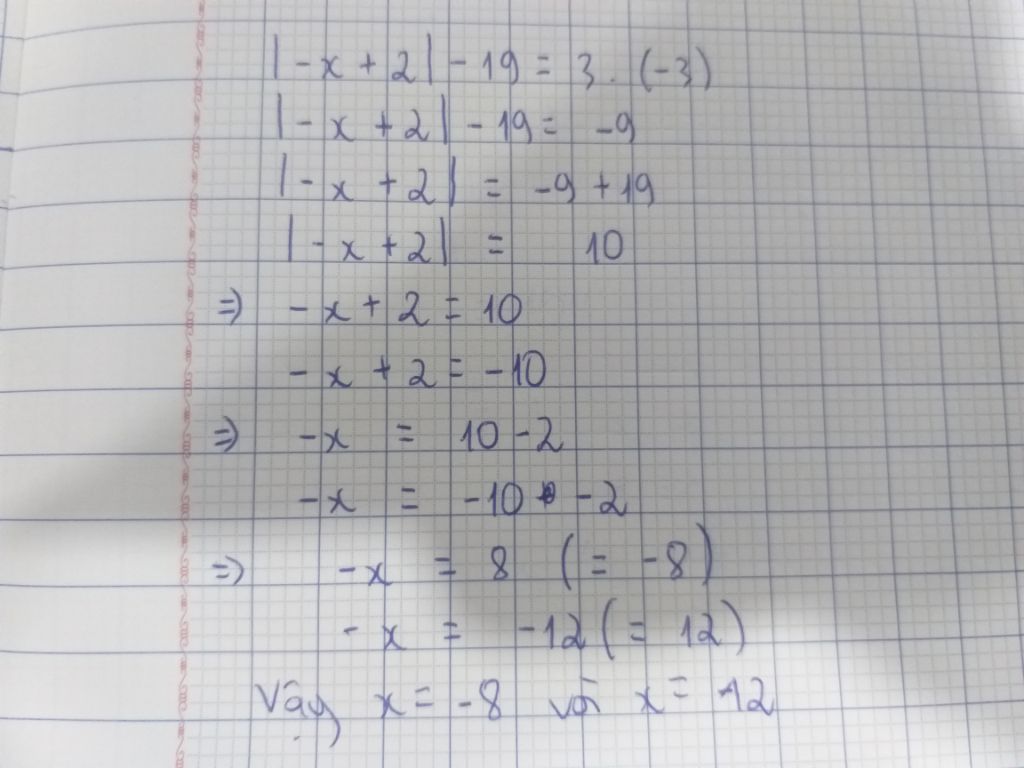 |-x + 2| - 19 = 3 . (-3)
|- x + 2| - 19 = -9
|- x + 2| = -9 + 19
|- x + 2| = 10
=> - x + 2 = 10
- x + 2 = -10
=> -x = 10 - 2
-x = -10 - 2
=> -x = 8 (= -8)
- x = -12 (= 12)
Vậy x = -8 và x = 12